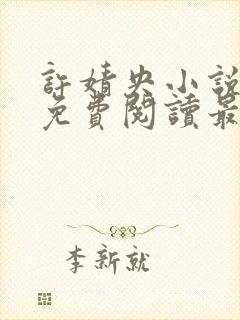 許婧央小說
免費閱讀最
李新就